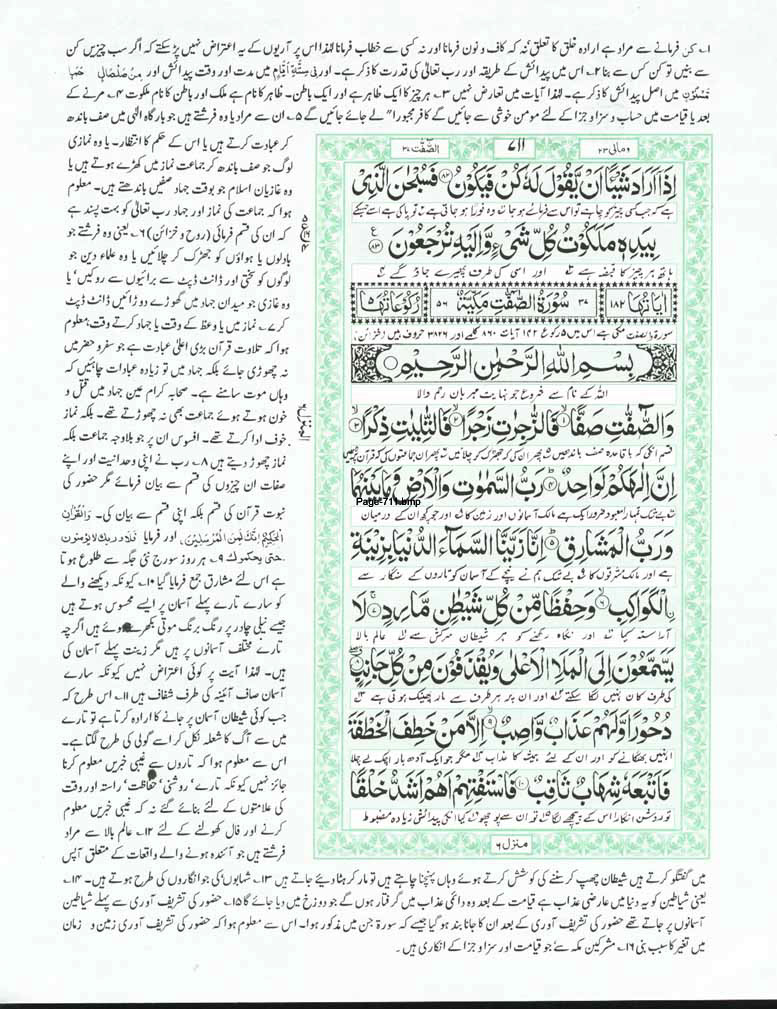 ۱؎ کن فرمانے سے مراد ہے ارادہ خلق کا تعلق' نہ کہ کاف و نون فرمانا اور نہ کسی سے خطاب فرمانا لہٰذا اس پر آریوں کے یہ اعتراض نہیں پڑ سکتے کہ اگر سب چیزیں کن
سے بنیں تو کن کس سے بنا ۲؎ اس میں پیدائش کے طریقہ اور رب تعالیٰ کی قدرت کا ذکر ہے۔ اور فِیْ سِتَّۃِ اَیَّامٍ میں مدت اور وقت پیدائش اور مِنْ صَلْصَالٍ حَمَاٍ
مَّسْنُوْنٍ میں اصل پیدائش کا ذکر ہے۔ لہٰذا آیات میں تعارض نہیں ۳؎ ہر چیز کا ایک ظاہر ہے اور ایک باطن۔ ظاہر کا نام ہے ملک اور باطن کا نام ملکوت ۴؎ مرنے کے
بعد یا قیامت میں حساب و سزا و جزا کے لئے مومن خوشی سے جائیں گے کافر مجبوراً" لے جائے جائیں گے ۵؎ ان سے مراد یا وہ فرشتے ہیں جو بارگاہ الٰہی میں صف باندھ
کر عبادت کرتے ہیں یا اس کے حکم کا انتظار۔ یا وہ نمازی
لوگ جو صف باندھ کر جماعت نماز میں کھڑے ہوتے ہیں یا
وہ غازیان اسلام جو بوقت جہاد صفیں باندھتے ہیں۔ معلوم
ہوا کہ جماعت کی نماز اور جہاد رب تعالیٰ کو بہت پسند ہے
کہ ان کی قسم فرمائی (روح و خزائن) ۶؎ یعنی وہ فرشتے جو
بادلوں یا ہواؤں کو جھڑک کر چلائیں یا وہ علماء دین جو
لوگوں کو سختی اور ڈانٹ ڈپٹ سے برائیوں سے روکیں' یا
وہ غازی جو میدان جہاد میں گھوڑے دوڑائیں ڈانٹ ڈپٹ
کر ۷؎ نماز میں یا وعظ کے وقت یا جہاد کرتے وقت' معلوم
ہوا کہ تلاوت قرآن بڑی اعلیٰ عبادت ہے جو سفر و حضر میں
نہ چھوڑی جائے بلکہ جہاد میں تو زیادہ عبادات چاہئیں کہ
وہاں موت سامنے ہے۔ صحابہ کرام عین جہاد میں قتل و
خون ہوتے ہوئے جماعت بھی نہ چھوڑتے تھے۔ بلکہ نماز
خوف ادا کرتے تھے۔ افسوس ان پر جو بلاوجہ جماعت بلکہ
نماز چھوڑ دیتے ہیں ۸؎ رب نے اپنی وحدانیت اور اپنے
صفات ان چیزوں کی قسم سے بیان فرمائے مگر حضور کی
نبوت قرآن کی قسم بلکہ اپنی قسم سے بیان کی۔ وَالْقُرْاٰنِ
الْحَکِیْمِ اِنَّکَ لَمِنَ الْمُرْسَلِیْنَ۔ اور فرمایا فَلَا وَرَبِّکَ لَا یُؤْمِنُوْنَ
حَتّٰی یُحَکِّمُوْکَ ۹؎ ہر روز سورج نئی جگہ سے طلوع ہوتا
ہے اس لئے مشارق جمع فرمایا گیا ۱۰؎ کیونکہ دیکھنے والے
کو سارے تارے پہلے آسمان پر ایسے محسوس ہوتے ہیں
جیسے نیلی چادر پر رنگ برنگ موتی بکھرے ہوئے ہیں اگرچہ
تارے مختلف آسمانوں پر ہیں مگر زینت پہلے آسمان کی
ہیں۔ لہٰذا آیت پر کوئی اعتراض نہیں کیونکہ سارے
آسمان صاف آئینہ کی طرف شفاف ہیں ۱۱؎ اس طرح کہ
جب کوئی شیطان آسمان پر جانے کا ارادہ کرتا ہے تو تارے
میں سے آگ کا شعلہ نکل کر اسے گولی کی طرح لگتا ہے۔
اس سے معلوم ہوا کہ تاروں سے غیبی خبریں معلوم کرنا
جائز نہیں کیونکہ تارے' روشنی' حفاظت' راستہ اور وقت
کی علامتوں کے لئے بنائے گئے نہ کہ غیبی خبریں معلوم
کرنے اور فال کھولنے کے لئے ۱۲؎ عالم بالا سے مراد
فرشتے ہیں جو آئندہ ہونے والے واقعات کے متعلق آپس
وما لی ۲۳
۷۱۱
الصّٰفّٰت ۳۷
اِذَاۤ اَرَادَ شَیْـًٔا اَنْ یَّقُوْلَ لَهٗ كُنْ فَیَكُوْنُ ﴿۸۲﴾ فَسُبْحٰنَ الَّذِیْ
ہے کہ جب کسی چیز کو چاہے تو اس سے فرمائے ہو جا تو وہ فوراً ہو جاتی ہے تو پاکی ہے اسے جسکے
بِیَدِهٖ مَلَكُوْتُ كُلِّ شَیْءٍ وَّاِلَیْهِ تُرْجَعُوْنَ ﴿۸۳﴾
ہاتھ ہر چیز کا قبضہ ہے اور اسی کی طرف پھیرے جاؤ گے
اٰیاتها ۱۸۲
۳۷ سُوْرَةُ الصّٰٓفّٰتِ مَكِّیَّةٌ ۵۶
ركوعاتها ۵
سورۃ والصٰفٰت مکی ہے اس میں ۵ رکوع ۱۸۲ آیات ۸۶۰ کلمے اور ۳۸۲۶ حروف ہیں (خزائن)
بِسْمِ اللّٰهِ الرَّحْمٰنِ الرَّحِیْمِ
اللہ کے نام سے شروع جو نہایت مہربان رحم والا
وَالصّٰٓفّٰتِ صَفًّا ﴿۱﴾ فَالزّٰجِرٰتِ زَجْرًا ﴿۲﴾ فَالتّٰلِیٰتِ ذِكْرًا ﴿۳﴾
قسم انکی کہ باقاعدہ صف باندھیں پھر ان کی کہ جھڑک کر چلائیں پھر ان جماعتوں کی کہ قرآن پڑھیں
اِنَّ اِلٰهَكُمْ لَوَاحِدٌ ﴿۴﴾ رَبُّ السَّمٰوٰتِ وَالْاَرْضِ وَمَا بَیْنَهُمَا
بے شک تمہارا معبود ضرور ایک ہے مالک آسمانوں اور زمین کا اور جو کچھ ان کے درمیان
Page-711.bmp
وَرَبُّ الْمَشَارِقِ ﴿۵﴾ اِنَّا زَیَّنَّا السَّمَآءَ الدُّنْیَا بِزِیْنَةِ
ہے اور مالک مشرقوں کا بے شک ہم نے نیچے کے آسمان کو تاروں کے سنگار سے
ۣالْكَوَاكِبِ ﴿۶﴾ وَحِفْظًا مِّنْ كُلِّ شَیْطٰنٍ مَّارِدٍ ﴿۷﴾ لَا
آراستہ کیا اور نگاہ رکھنے کو ہر شیطان سرکش سے عالم بالا
یَسَّمَّعُوْنَ اِلَی الْمَلَاِ الْاَعْلٰی وَیُقْذَفُوْنَ مِنْ كُلِّ جَانِبٍ ﴿۸﴾
کی طرف کان نہیں لگا سکتے اور ان پر ہر طرف سے مار پھینک ہوتی ہے
دُحُوْرًا وَّلَهُمْ عَذَابٌ وَّاصِبٌ ﴿۹﴾ اِلَّا مَنْ خَطِفَ الْخَطْفَةَ
انہیں بھگانے کو اور ان کے لئے ہمیشہ کا عذاب مگر جو ایک آدھ بار اچک لے چلا
فَاَتْبَعَهٗ شِهَابٌ ثَاقِبٌ ﴿۱۰﴾ فَاسْتَفْتِهِمْ اَهُمْ اَشَدُّ خَلْقًا
تو روشن انگارا اس کے پیچھے لگا تو ان سے پوچھو کیا انکی پیدائش زیادہ مضبوط
منزل ۶
المنزل
میں گفتگو کرتے ہیں شیطان چھپ کر سننے کی کوشش کرتے ہوئے وہاں پہنچنا چاہتے ہیں تو مار کر ہٹا دیئے جاتے ہیں ۱۳؎ شہابوں' کی جو انگاروں کی طرح ہوتے ہیں۔ ۱۴؎
یعنی شیاطین کو یہ دنیا میں عارضی عذاب ہے قیامت کے بعد وہ دائمی عذاب میں گرفتار ہوں گے جو دوزخ میں دیا جائے گا ۱۵؎ حضور کی تشریف آوری سے پہلے شیاطین
آسمانوں پر جاتے تھے حضور کی تشریف آوری کے بعد ان کا جانا بند ہو گیا جیسے کہ سورۃ جن میں مذکور ہوا۔ اس سے معلوم ہوا کہ حضور کی تشریف آوری زمین و زمان
میں تغیر کا سبب بنی ۱۶؎ مشرکین مکہ سے' جو قیامت اور سزا و جزا کے انکاری ہیں۔